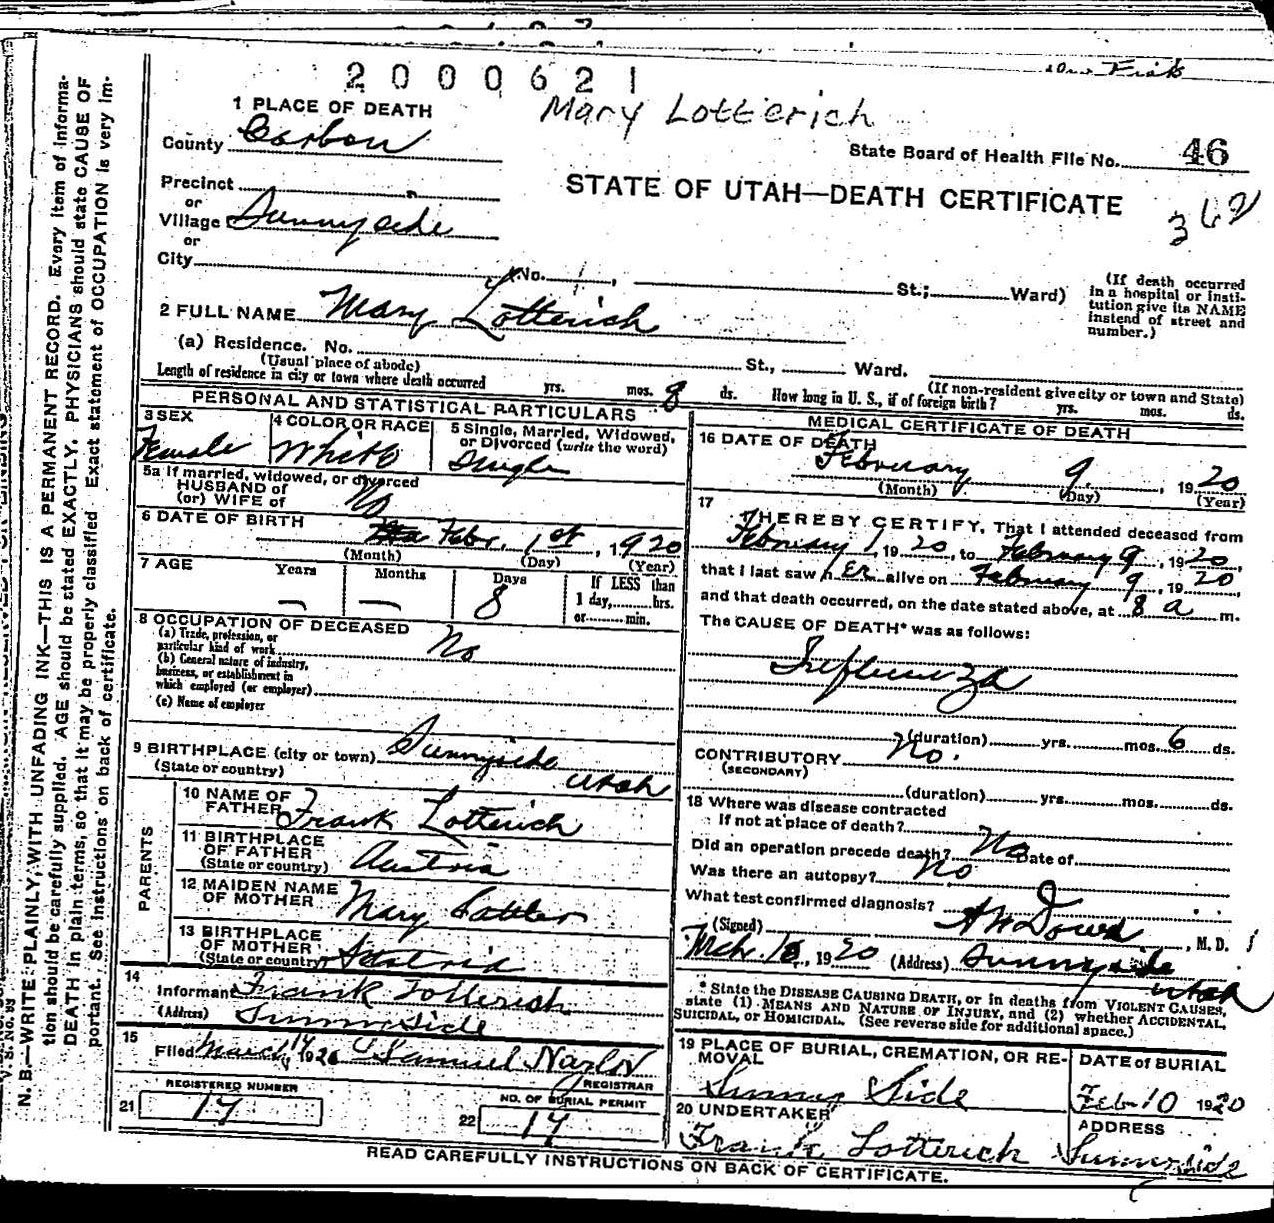 2000621
Mary Lotterich
1 PLACE OF DEATH
County Carbon
State Board of Health File No. 46
STATE OF UTAH—DEATH CERTIFICATE
362
Precinct
or
Village Sunnyside
or
City No. St.; Ward)
(If death occurred
in a hospital or insti-
tution give its NAME
instead of street and
number.)
2 FULL NAME Mary Lotterich
(a) Residence. No. St., Ward.
(Usual place of abode) (If non-resident give city or town and State)
Length of residence in city or town where death occurred yrs. mos. 8 ds. How long in U. S., if of foreign birth? yrs. mos. ds.
PERSONAL AND STATISTICAL PARTICULARS
3 SEX
Female
4 COLOR OR RACE
White
5 Single, Married, Widowed,
or Divorced (write the word)
Single
5a If married, widowed, or divorced
HUSBAND of
(or) WIFE of No
6 DATE OF BIRTH
Febr. 1st, 1920
(Month) (Day) (Year)
7 AGE Years Months Days If LESS than
— — 8 1 day, hrs.
or min.
8 OCCUPATION OF DECEASED
(a) Trade, profession, or
particular kind of work No
(b) General nature of industry,
business, or establishment in
which employed (or employer)
(c) Name of employer
9 BIRTHPLACE (city or town) Sunnyside
(State or country) Utah
PARENTS
10 NAME OF
FATHER Frank Lotterich
11 BIRTHPLACE
OF FATHER
(State or country) Austria
12 MAIDEN NAME
OF MOTHER Mary
13 BIRTHPLACE
OF MOTHER
(State or country) Austria
14
Informant Frank Lotterich
(Address) Sunnyside
15
Filed March 1920 Samuel Naylor
REGISTRAR
REGISTERED NUMBER
21 17
NO. OF BURIAL PERMIT
22 17
MEDICAL CERTIFICATE OF DEATH
16 DATE OF DEATH
February 9, 1920
(Month) (Day) (Year)
17
I HEREBY CERTIFY, That I attended deceased from
February 1, 1920, to February 9, 1920,
that I last saw her alive on February 9, 1920
and that death occurred, on the date stated above, at 8 a m.
The CAUSE OF DEATH* was as follows:
Influenza
(duration) yrs. mos. 6 ds.
CONTRIBUTORY No.
(SECONDARY)
(duration) yrs. mos. ds.
18 Where was disease contracted
If not at place of death?
Did an operation precede death? No Date of
Was there an autopsy? No
What test confirmed diagnosis?
(Signed) A W Dowd, M. D.
Mch. 18, 1920 (Address) Sunnyside
Utah
* State the DISEASE CAUSING DEATH, or in deaths from VIOLENT CAUSES,
state (1) MEANS AND NATURE OF INJURY, and (2) whether ACCIDENTAL,
SUICIDAL, or HOMICIDAL. (See reverse side for additional space.)
19 PLACE OF BURIAL, CREMATION, OR RE-
MOVAL
Sunny Side
DATE of BURIAL
Feb 10 1920
20 UNDERTAKER
Frank Lotterich
ADDRESS
Sunnyside
READ CAREFULLY INSTRUCTIONS ON BACK OF CERTIFICATE.
N. B.—WRITE PLAINLY, WITH UNFADING INK—THIS IS A PERMANENT RECORD. Every item of informa-
tion should be carefully supplied. AGE should be stated EXACTLY. PHYSICIANS should state CAUSE OF
DEATH in plain terms, so that it may be properly classified. Exact statement of OCCUPATION is very im-
portant. See instructions on back of certificate.